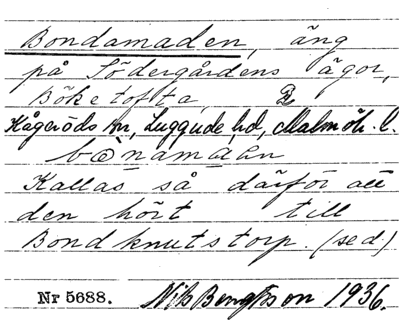 Bondamaden, äng
på Södergårdens ägor,
Böketofta,
Kågeröds sn, Luggude hd, Malmöh. l.
Kallas så därför att
den hört till
Bondknutstorp. (sed)
Nr 5688. Nils Bengtsson 1936.